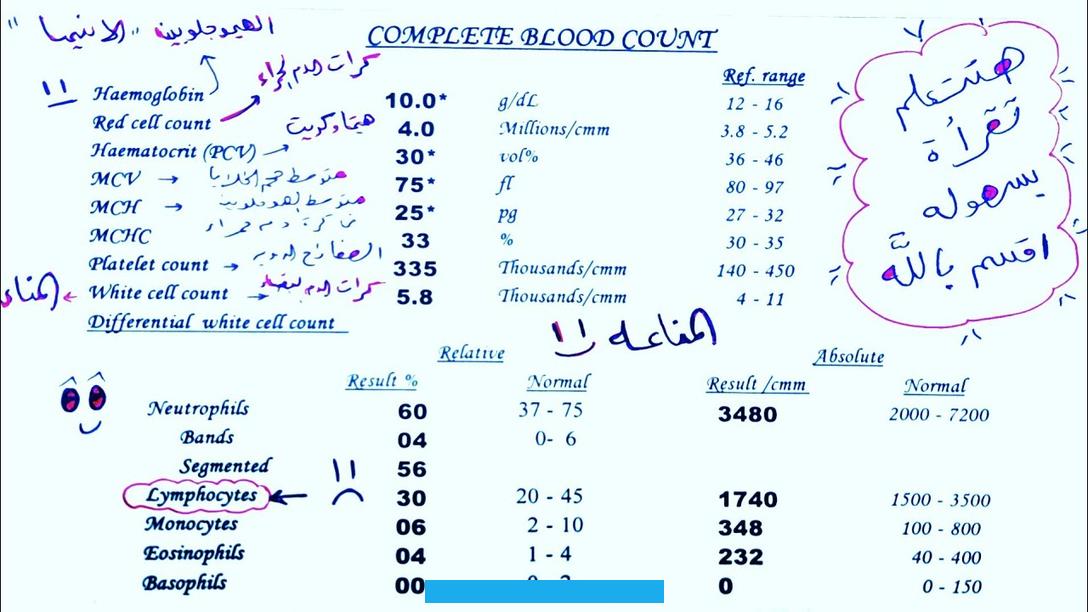 الهيموجلوبين "الانيميا"
COMPLETE BLOOD COUNT
كرات الدم الحمراء
Ref. range
Haemoglobin 10.0* g/dL 12 - 16
Red cell count 4.0 Millions/cmm 3.8 - 5.2
هيماتوكريت
Haematocrit (PCV) → 30* vol% 36 - 46
MCV → متوسط حجم الخلايا 75* fl 80 - 97
MCH → متوسط الهيموجلوبين 25* pg 27 - 32
MCHC 33 % 30 - 35
Platelet count → الصفائح الدموية 335 Thousands/cmm 140 - 450
White cell count → كرات الدم البيضاء 5.8 Thousands/cmm 4 - 11
Differential white cell count
المناعه
هنتعلم
قراءة
بسهوله
اقسم بالله
Relative Absolute
Result % Normal Result /cmm Normal
Neutrophils 60 37 - 75 3480 2000 - 7200
Bands 04 0- 6
Segmented 56
Lymphocytes 30 20 - 45 1740 1500 - 3500
Monocytes 06 2 - 10 348 100 - 800
Eosinophils 04 1 - 4 232 40 - 400
Basophils 00 0 0 - 150